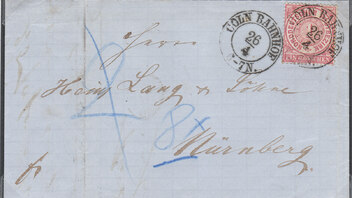 CÖLN BAHNHOF
26
4
-7N.
CÖLN BAHNHOF
26
4
Herrn
Heinr. Lang & Söhne
2
8x
Nürnberg